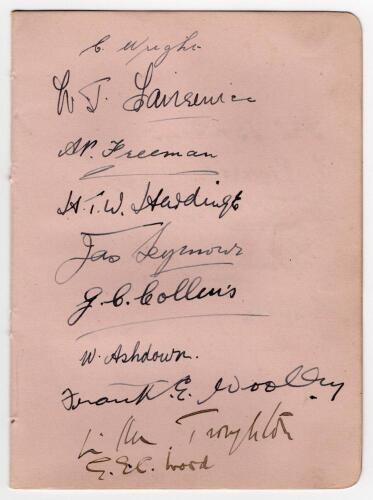 C. Wright
A.P. Freeman
H.T.W. Hardinge
Jas Seymour
G.C. Collins
W. Ashdown.
Frank. E. Woolley
Troughton
G.E.C. Wood